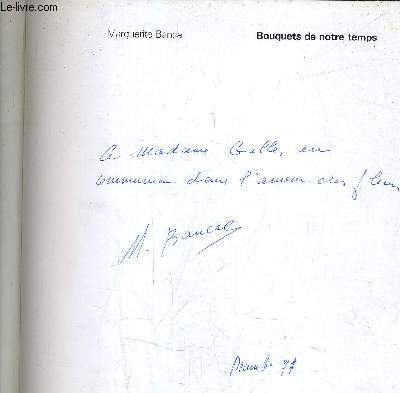 Le-livre.com
Marguerite Bancal Bouquets de notre temps
A Madame Gelle, en
communion dans l'amour des fleurs
M. Bancal
Décembre 77